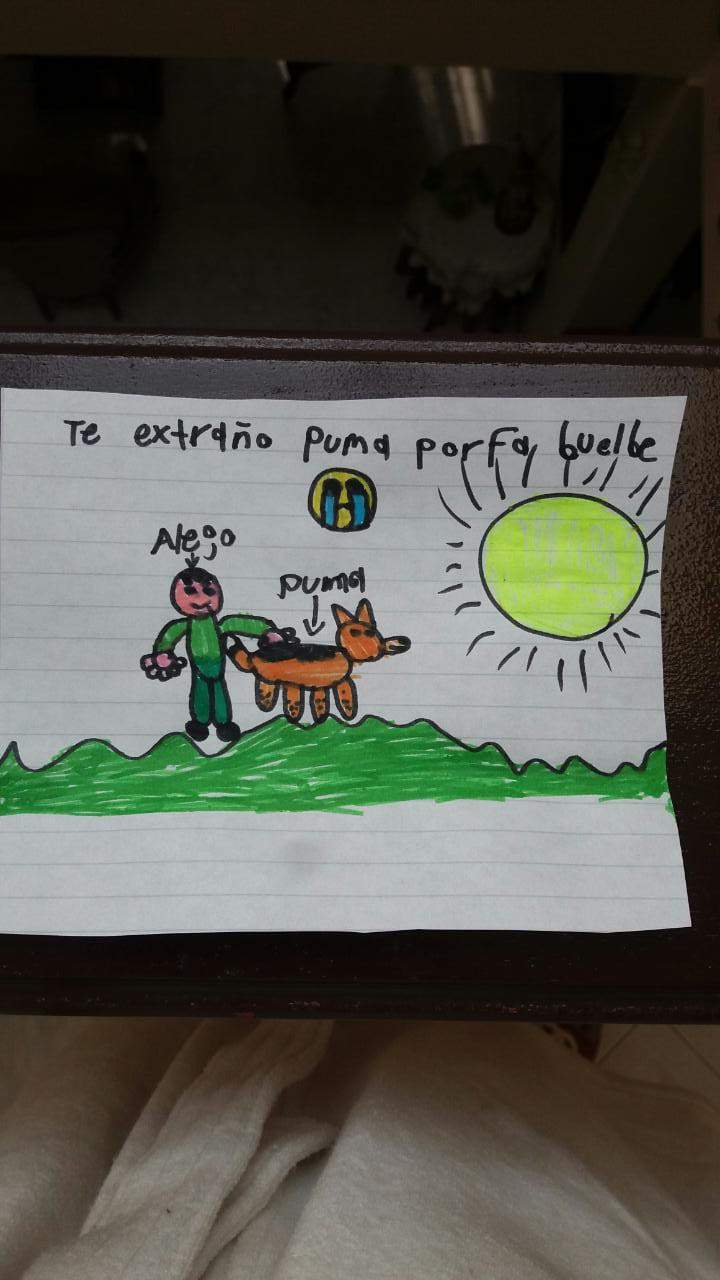 Te extraño Puma porfa buelbe
Alejo
puma